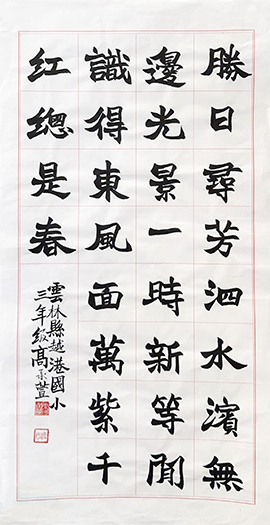 勝日尋芳泗水濱無
邊光景一時新等閒
識得東風面萬紫千
紅總是春
雲林縣越港國小
三年級高